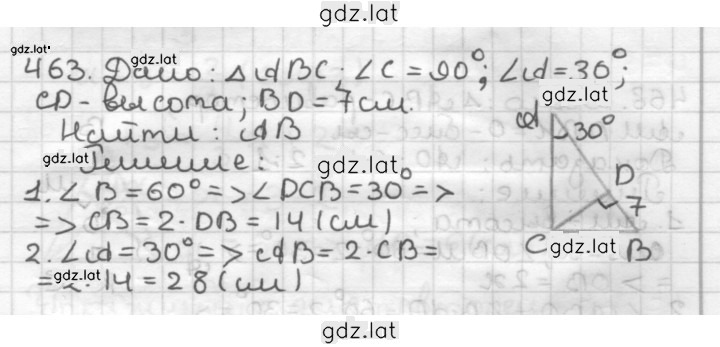 gdz.lat
gdz.lat
gdz.lat
463. Дано: △ABC; ∠C = 90°; ∠A = 30°;
gdz.lat
CD - высота; BD = 7 см.
A 30°
Найти: AB
gdz.lat Решение:
gdz.lat
1. ∠B = 60° => ∠DCB = 30° =>
D
=> CB = 2 · DB = 14 (см)
7
C gdz.lat B
2. ∠A = 30° => AB = 2 · CB =
gdz.lat
= 2 · 14 = 28 (см)
gdz.lat